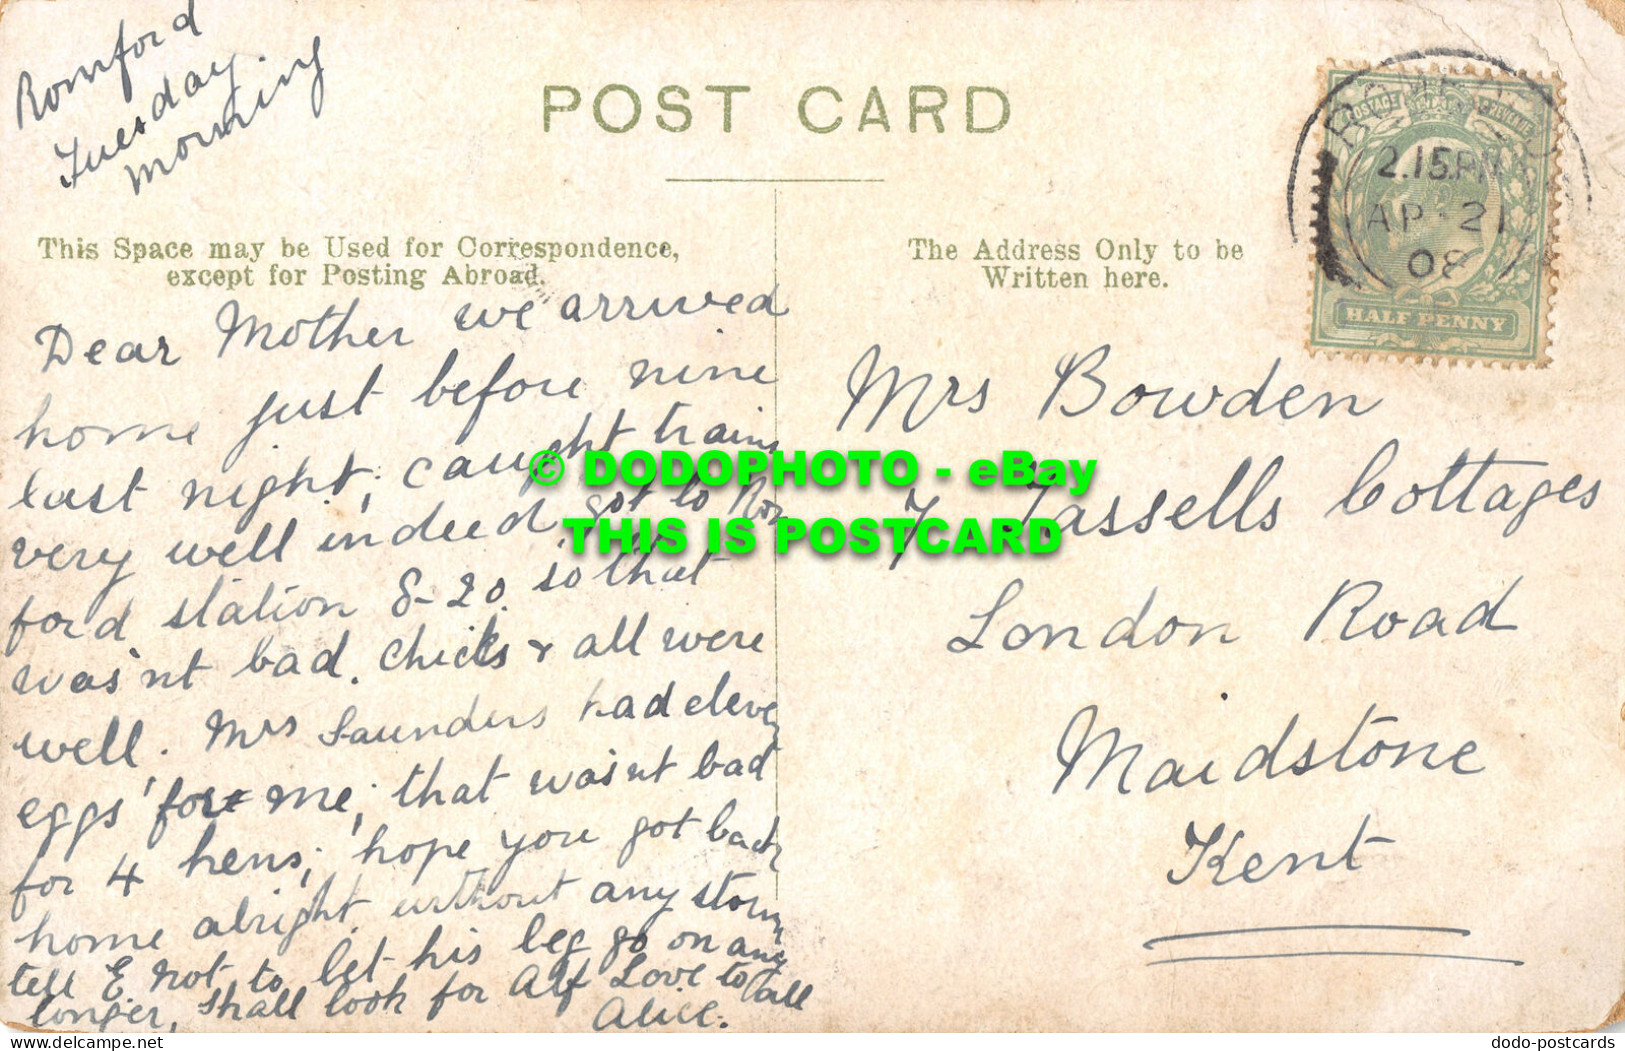 Romford
Tuesday
Morning
POST CARD
This Space may be Used for Correspondence,
except for Posting Abroad.
The Address Only to be
Written here.
POSTAGE REVENUE
ROMFORD
2.15PM
AP 21
08
HALF PENNY
Dear Mother we arrived
home just before nine
last night; caught trains
very well indeed got to Rom
ford station 8-20. so that
was'nt bad. Chicks & all were
well. Mrs Saunders had eleven
eggs for me; that wasnt bad
for 4 hens; hope you got back
home alright without any storm
tell E not to let his leg go on any
longer, shall look for Alf Love to all
Alice.
Mrs Bowden
7 Tassells Cottages
London Road
Maidstone
Kent
© DODOPHOTO - eBay
THIS IS POSTCARD
www.delcampe.net
dodo-postcards